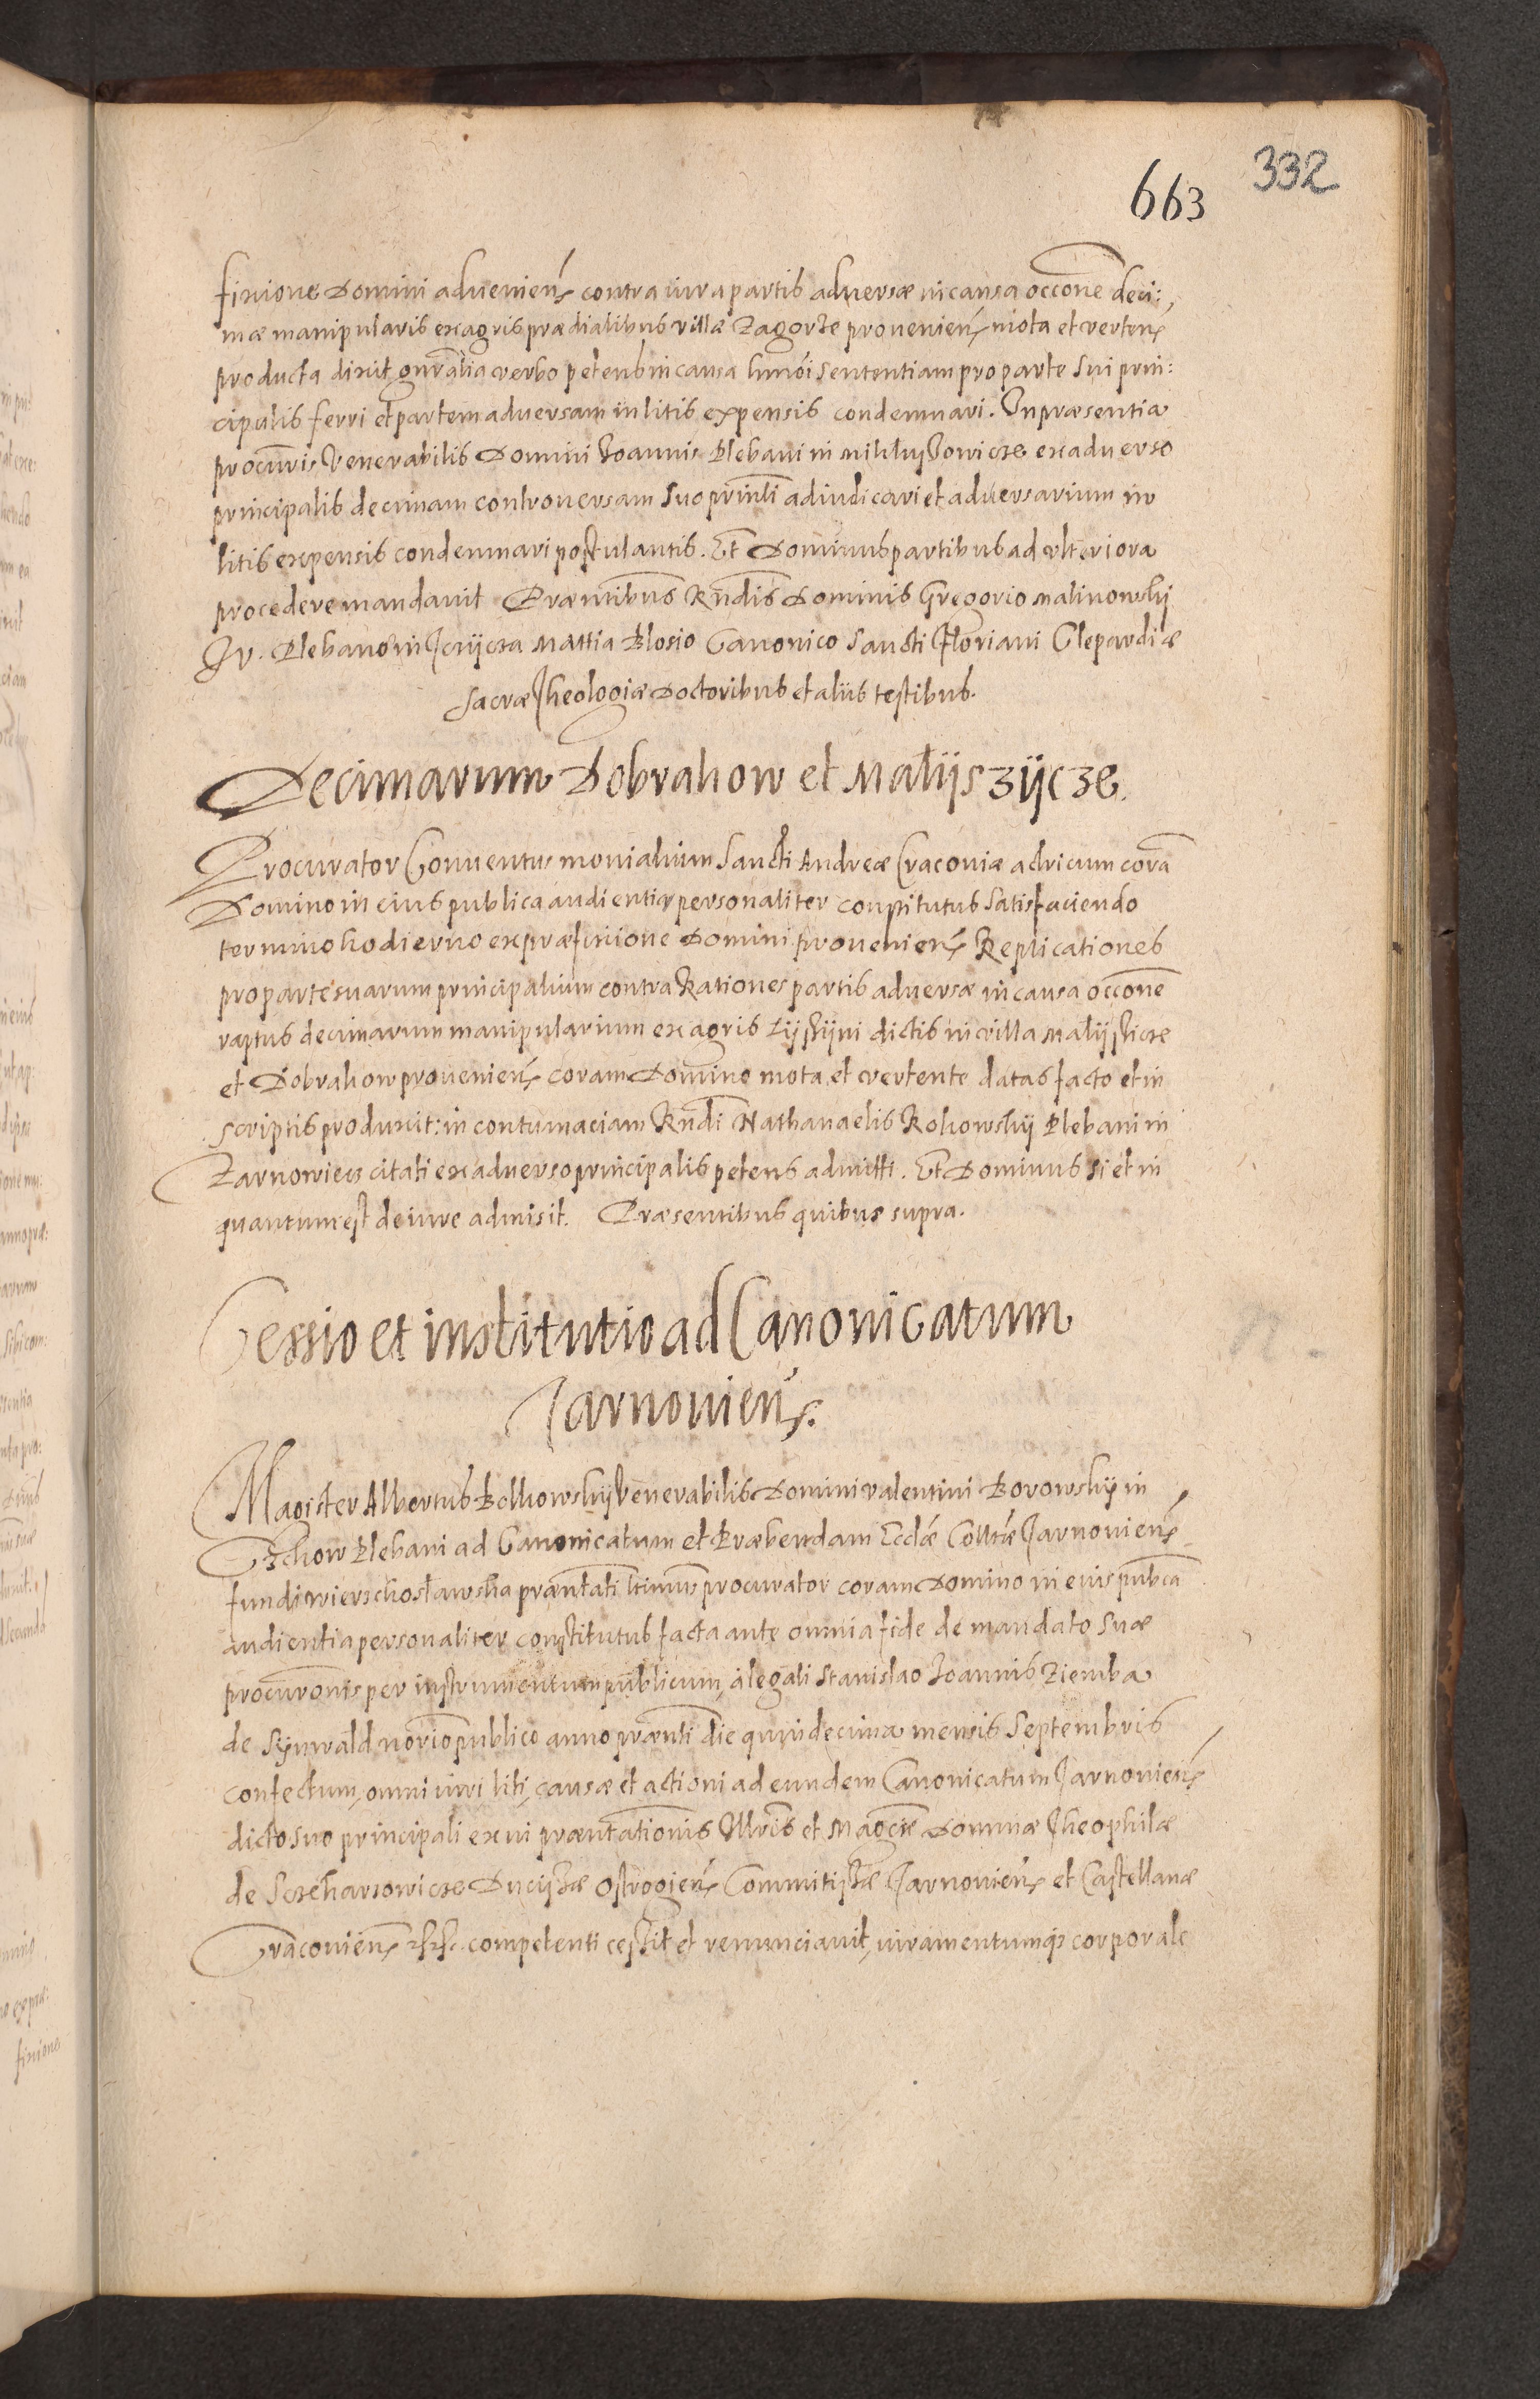 332
663
fixione Domini advenien͂ contra iura partis adversæ in causa occōne deci:
mæ manipularis ex agris prædialibus villæ Zagorze provenien͂ mota et verten͂
producta dixit gn̄rālia verbo petens in causa hmōi sententiam pro parte sui prin:
cipalis ferri et partem adversam in litis expensis condemnari. In præsentia
procūris Venerabilis Domini Joannis Plebani in ex adverso
principalis decimam controversam suo prin̄li adiudicari et adversarium in
litis expensis condemnari postulantis. Et Dominus partibus ad ulteriora
procedere mandavit Præntibus Rn̄dis Dominis Gregorio Malinowskj
Jr. Plebano in Mattia Blosio Canonico Sancti Floriani Clepardiæ
Sacræ Theologiæ Doctoribus et aliis testibus.
Decimarum Dobrakow et Malÿszÿcze.
Procurator Conventus monialium Sancti Andreæ Cracoviæ actricum corā
Domino in eius publica audientia personaliter constitutus satisfaciendo
termino hodierno ex præfixione Domini provenien͂ Replicationes
pro parte suarum principalium contra Rationes partis adversæ in causa occōne
raptus decimarum manipularium ex agris Lÿssÿni dictis in villa Malÿssicze
et Dobrakow provenien͂ coram Domino mota et vertente datas facto et in
scriptis produxit: in contumaciam Rn̄di Nathanaelis Rokowskÿ Plebani in
Zarnowiecz citati ex adverso principalis petens admitti. Et Dominus si et in
quantum est de iure admisit. Præsentibus quibus supra.
Cessio et institutio ad Canonicatum
Tarnovien͂.
Magister Albertus Bolkowskÿ Venerabilis Domini Valentini Borowskÿ in
Czchow Plebani ad Canonicatum et Præbendam Ecclæ Colltæ Tarnovien͂
fundi Wierschoslawska præntati ltimus procurator coram Domino in euis pubca
audientia personaliter constitutus facta ante omnia fide de mandato suæ
procurōnis per instrumentum publicum, a legali Stanislao Joannis Ziemba
de Sÿnwald norio publico anno prænti die quindecima mensis Septembris
confectum, omni iuri liti, causæ et actioni ad eundem Canonicatum Tarnovien͂
dicto suo principali ex vi præntationis Illrīs et Magcæ Dominæ Theophilæ
de Ducissæ Ostrogien͂ Commitissæ Tarnovien͂ et Castellanæ
Cracovien͂ competenti cessit et renunciavit, iuramentumq̃ corporale